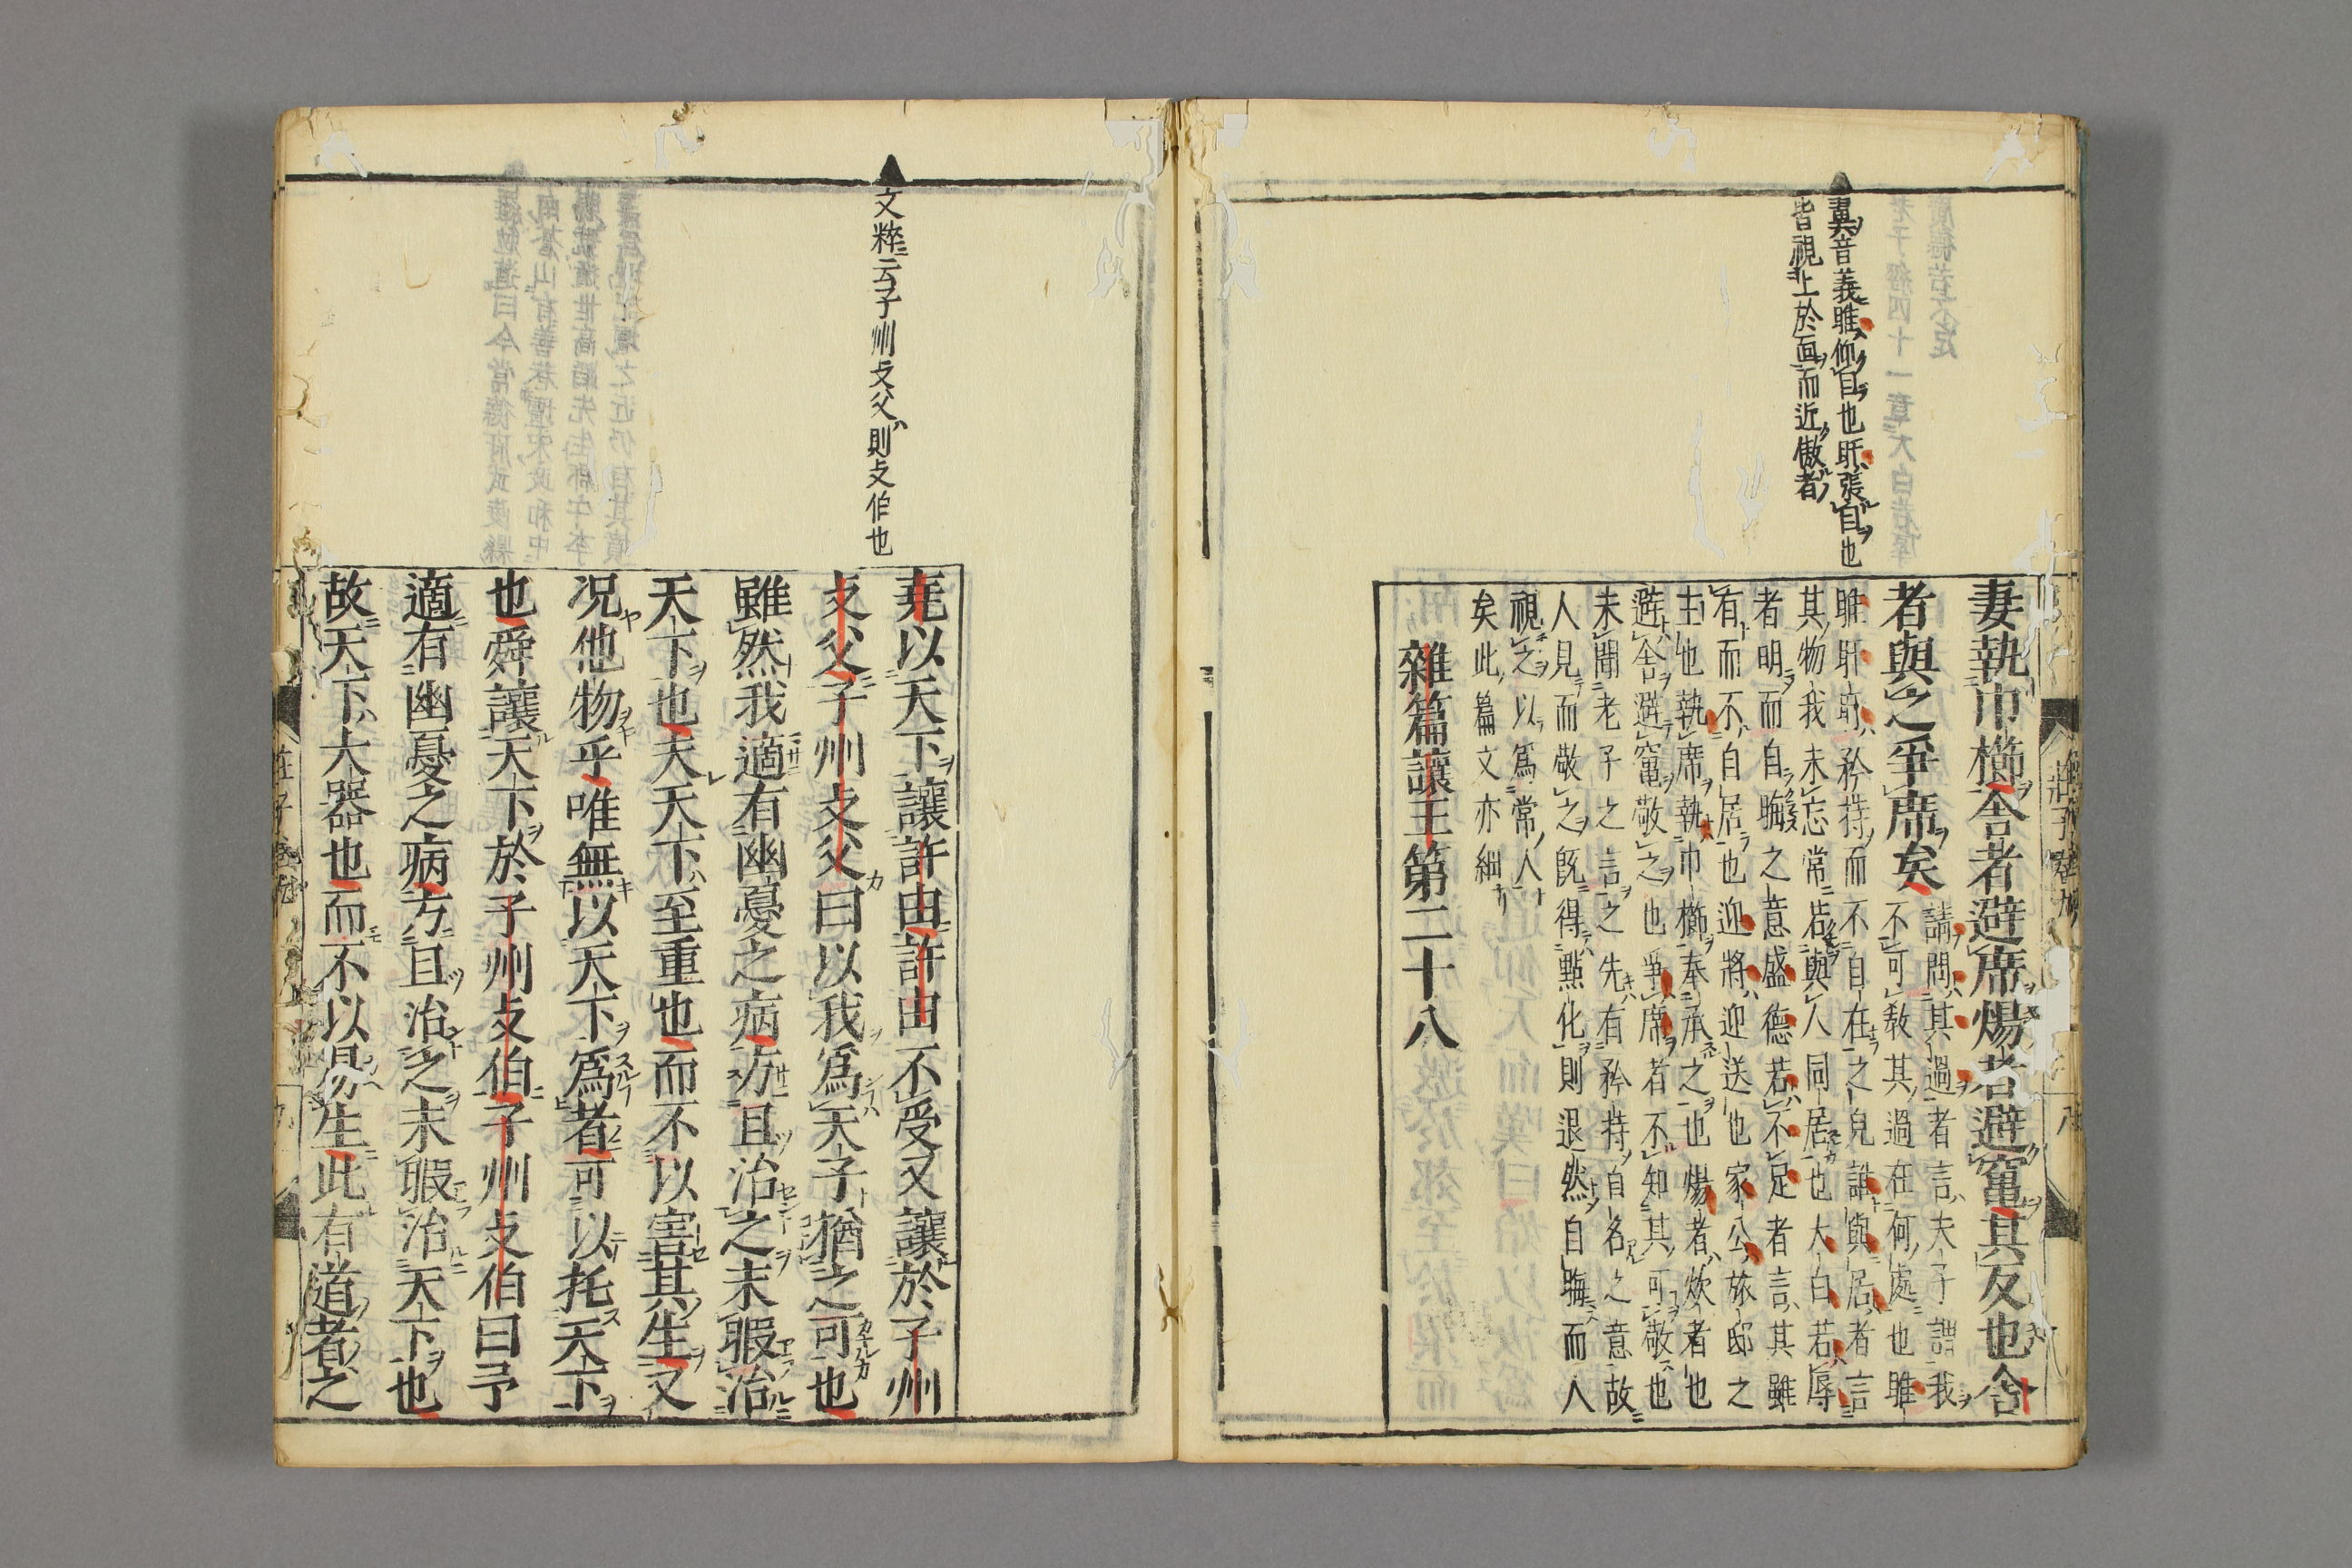 翼音義睢仰目也盱張目也
皆視上於面而近傲者
妻執巾櫛舍者避席煬者避竈其反也舍
者與之爭席矣
請問其過者言夫子謂我
不可敎其過在何處也睢
睢盱盱矜持而不自在之皃誰與居者言
其物我未忘常若與人同居也大白若辱
者明而自晦之意盛德若不足者言其雖
有而不自居也迎將迎送也家公旅邸之
主也執席執巾櫛奉承之也煬者炊者也
避舍避竈敬之也爭席者不知其可敬也
未聞老子之言之先有矜持自名之意故
人見而敬之旣得點化則退然自晦而人
視之以爲常人
矣此篇文亦細
雜篇讓王第二十八
文粹云子州支父則支伯也
堯以天下讓許由許由不受又讓於子州
支父子州支父曰以我爲天子猶之可也
雖然我適有幽憂之病方且治之未暇治
天下也夫天下至重也而不以害其生又
况他物乎唯無以天下爲者可以托天下
也舜讓天下於子州支伯子州支伯曰予
適有幽憂之病方且治之未暇治天下也
故天下大器也而不以易生此有道者之